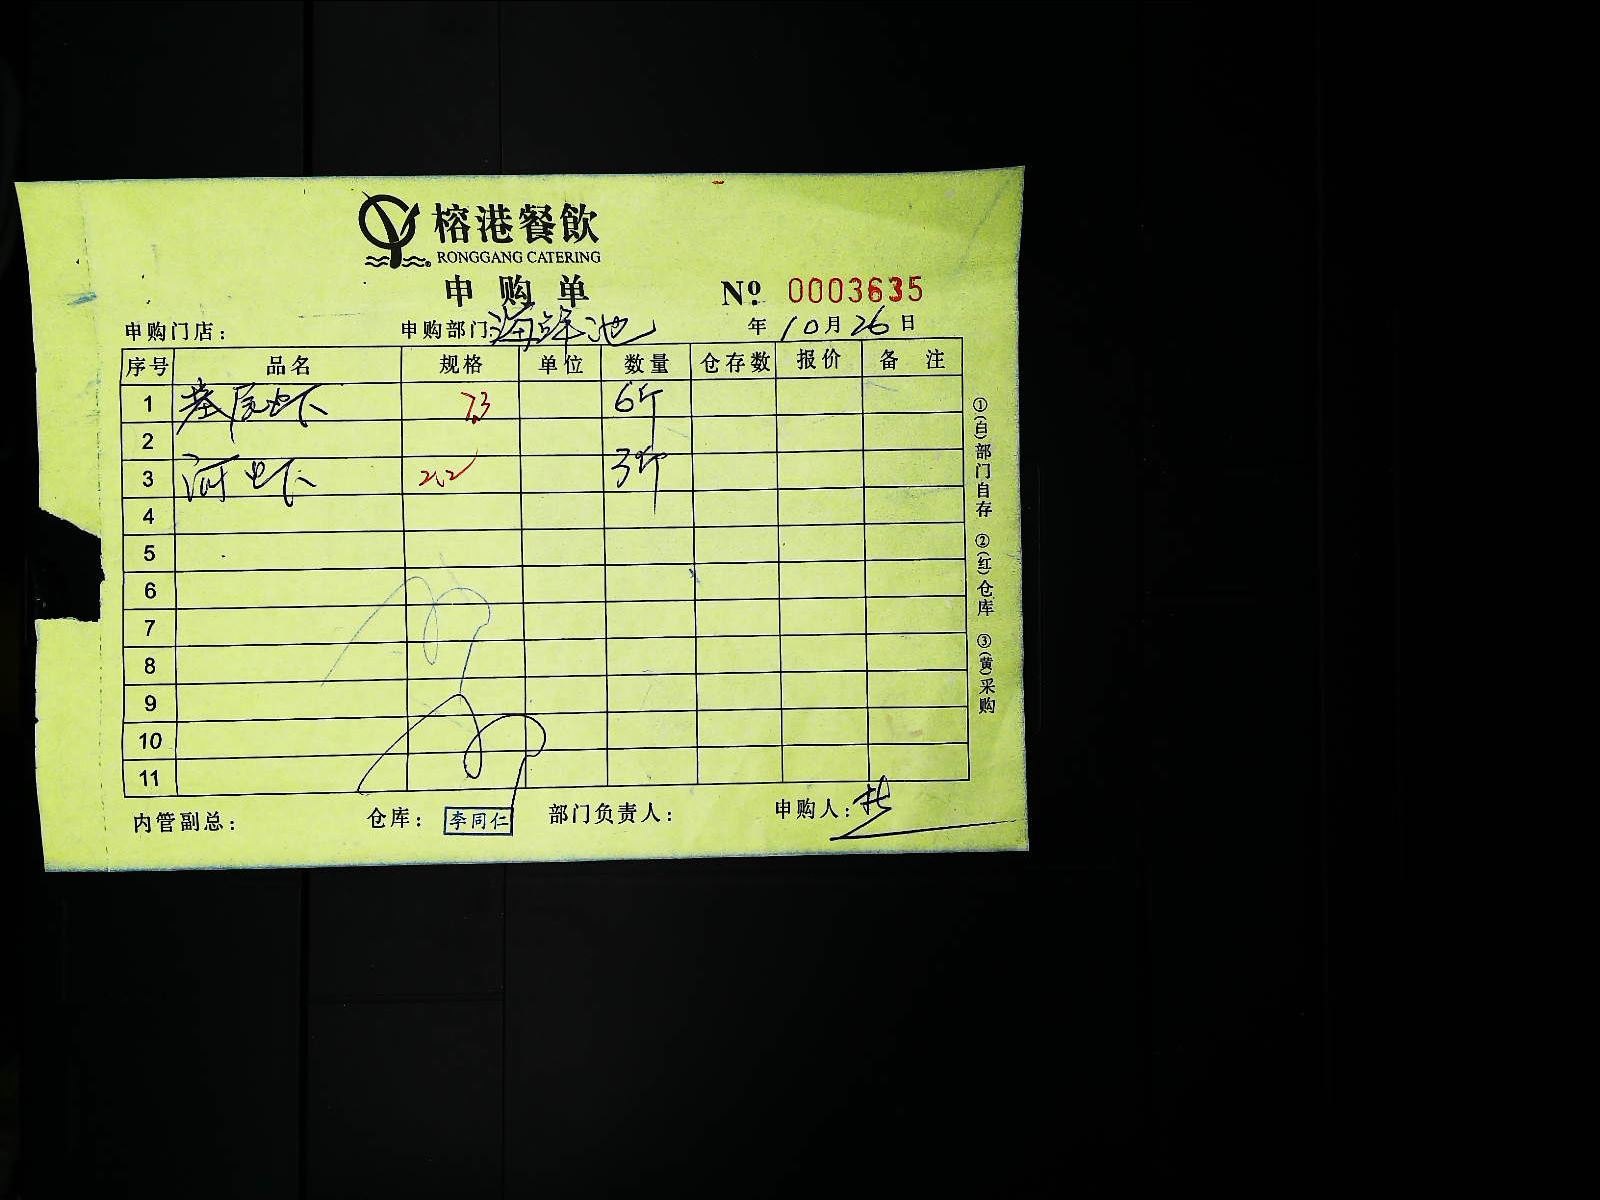 榕港餐飲
RONGGANG CATERING
申购单
№ 0003635
申购门店： 申购部门：海鲜池 年 10月26日
序号 品名 规格 单位 数量 仓存数 报价 备注
1 基尾虾 7.3 6斤
2
3 河虾 2.2 3斤
4
5
6
7
8
9
10
11
内管副总： 仓库： 李同仁 部门负责人： 申购人：
①(白)部门自存 ②(红)仓库 ③(黄)采购